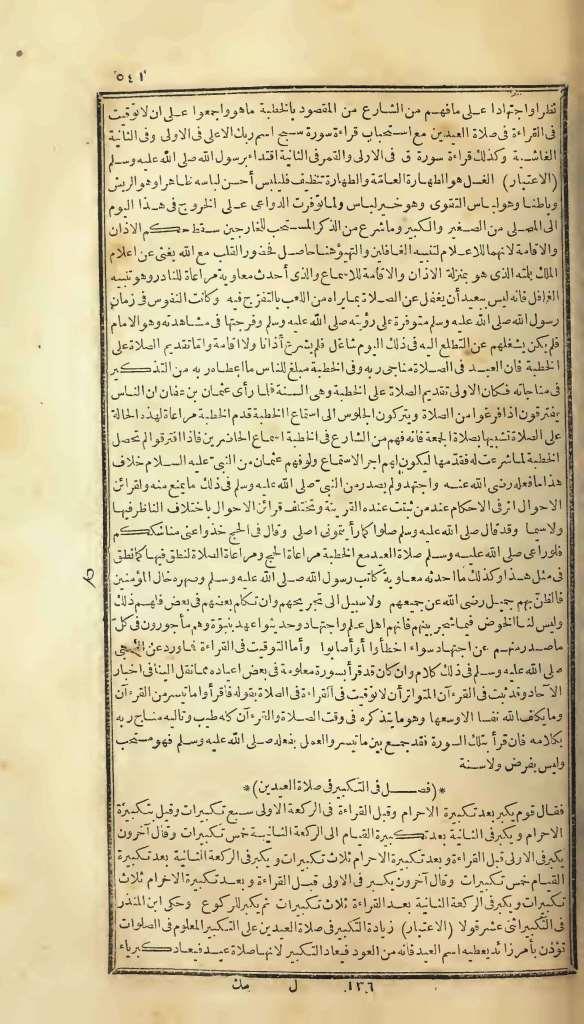 ٥٤١
نظرا واجتهادا على ما فهم من الشارع من المقصود بالخطبة ما هو وأجمعوا على ان لا توقيت
فى القراءة فى صلاة العيدين مع استحباب قراءة سورة سبح اسم ربك الاعلى فى الاولى وفى الثانية
الغاشية وكذلك قراءة سورة ق فى الاولى والقمر فى الثانية اقتداء برسول الله صلى الله عليه وسلم
(الاعتبار) الغسل هو الطهارة العامّة والطهارة تنظيف فليلبس أحسن لباسه ظاهرا وهو الريش
وباطنا وهو لباس التقوى وهو خير لباس ولما توفرت الدواعى على الخروج فى هذا اليوم
الى المصلى من الصغير والكبير وما شرع من الذكر المستحب للخارجين سقط حكم الاذان
والاقامة لانهما للاعلام لتنبيه الغافلين والتهيؤ هنا حاصل فحضور القلب مع الله يغنى عن اعلام
الملك بلمته الذى هو بمنزلة الاذان والاقامة للاسماع والذى أحدث معاوية مراعاة للنادر وهو تنبيه
الغافل فانه ليس ببعيد أن يغفل عن الصلاة بما يراه من اللعب بالتفرّج فيه وكانت النفوس فى زمان
رسول الله صلى الله عليه وسلم متوفرة على رؤيته صلى الله عليه وسلم وفرجتها فى مشاهدته وهو الامام
فلم يكن يشغلهم عن التطلع اليه فى ذلك اليوم شاغل فلم يشرع أذانا ولا اقامة وامّا تقديم الصلاة على
الخطبة فان العبد فى الصلاة مناجى ربه وفى الخطبة مبلغ للناس ما اعطاه ربه من التذكير
فى مناجاته فكان الاولى تقديم الصلاة على الخطبة وهى السنة فلما رأى عثمان بن عفان ان الناس
يفترقون اذا فرغوا من الصلاة ويتركون الجلوس الى استماع الخطبة قدم الخطبة مراعاة لهذه الحالة
على الصلاة تشبيها بصلاة الجمعة فانه فهم من الشارع فى الخطبة اسماع الحاضرين فاذا افترقوا لم تحصل
الخطبة لما شرعت له فقدّمها ليكون لهم اجر الاستماع ولو فهم عثمان من النبىّ عليه السلام خلاف
هذا ما فعله رضى الله عنه واجتهد ولم يصدر من النبىّ صلى الله عليه وسلم فى ذلك ما يمنع منه ولقرائن
الاحوال اثر فى الاحكام عند من ثبتت عنده القرينة وتختلف قرائن الاحوال باختلاف الناظر فيها
ولا سيما وقد قال صلى الله عليه وسلم صلوا كما رأيتمونى اصلى وقال فى الحج خذوا عنى مناسككم
فلو راعى صلى الله عليه وسلم صلاة العيد مع الخطبة مراعاة الحج ومراعاة الصلاة لنطق فيها كما نطق
فى مثل هذا وكذلك ما احدثه معاوية كاتب رسول الله صلى الله عليه وسلم وصهره خال المؤمنين
فالظنّ بهم جميل رضى الله عن جميعهم ولا سبيل الى تجريحهم وان تكلم بعضهم فى بعض فلهم ذلك
وليس لنا الخوض فيما شجر بينهم فانهم اهل علم واجتهاد وحديثوا عهد بنبوّة وهم مأجورون فى كلّ
ما صدر منهم عن اجتهاد سواء اخطأوا أو أصابوا وأما التوقيت فى القراءة فما ورد عن النبىّ
صلى الله عليه وسلم فى ذلك كلام وان كان قد قرأ بسورة معلومة فى بعض اعياده مما نقل الينا فى اخبار
الآحاد وقد ثبت فى القرءآن المتواتر أن لا توقيت فى القراءة فى الصلاة بقوله فاقرأوا ما تيسر من القرءآن
وما يكلف الله نفسا الا وسعها وهو ما يتذكره فى وقت الصلاة والقرءآن كله طيب وتاليه مناج ربه
بكلامه فان قرأ بتلك السورة فقد جمع بين ما تيسر والعمل بفعله صلى الله عليه وسلم فهو مستحب
وليس بفرض ولا سنة
*(فصل فى التكبير فى صلاة العيدين)*
فقال قوم يكبر بعد تكبيرة الاحرام وقبل القراءة فى الركعة الاولى سبع تكبيرات وقيل بتكبيرة
الاحرام ويكبر فى الثانية بعد تكبيرة القيام الى الركعة الثانية خمس تكبيرات وقال آخرون
يكبر فى الاولى قبل القراءة وبعد تكبيرة الاحرام ثلاث تكبيرات ويكبر فى الركعة الثانية بعد تكبيرة
القيام خمس تكبيرات وقال آخرون يكبر فى الاولى قبل القراءة وبعد تكبيرة الاحرام ثلاث
تكبيرات ويكبر فى الركعة الثانية بعد القراءة ثلاث تكبيرات ثم يكبر للركوع وحكى ابن المنذر
فى التكبير اثنى عشر قولا (الاعتبار) زيادة التكبير فى صلاة العيدين على التكبير المعلوم فى الصلوات
تؤذن بأمر زائد يعطيه اسم العيد فانه من العود فيعاد التكبير لانها صلاة عيد فيعاد كبرياء
١٣٦ ل مك